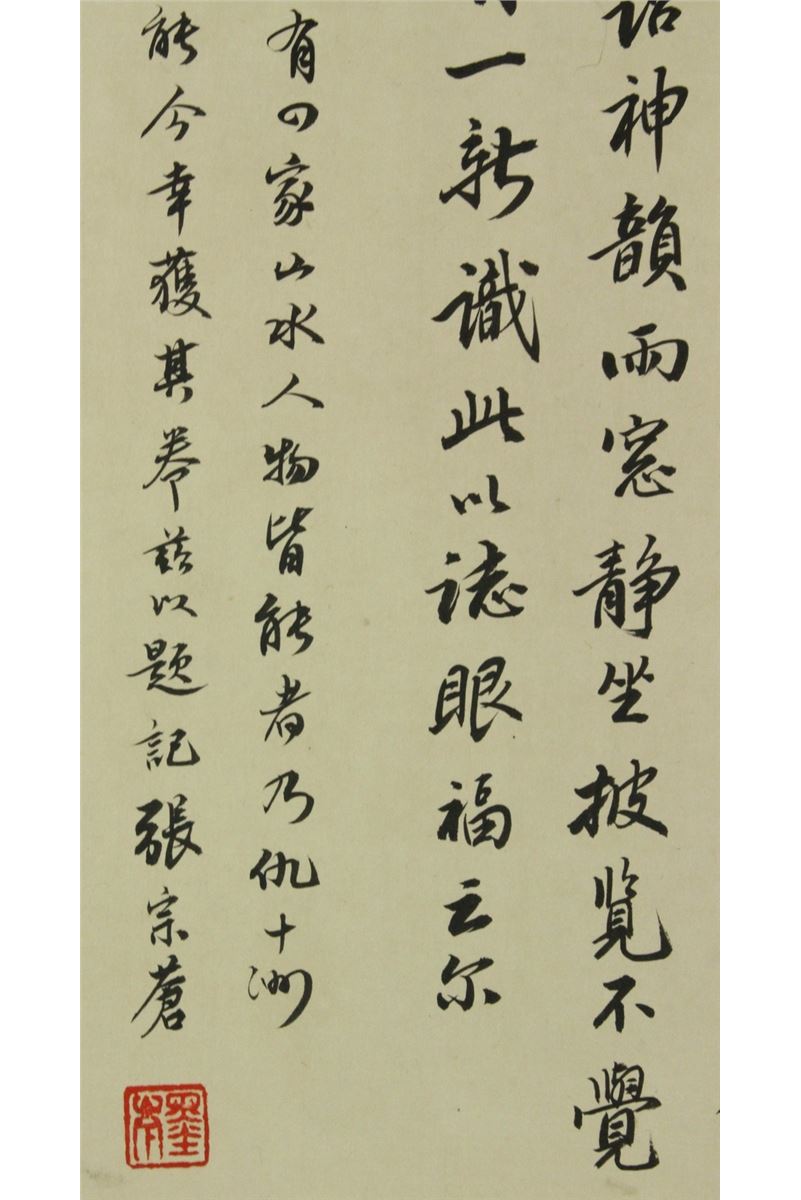 神韻雨窓静坐披覽不覺
一新識此以誌眼福云尔
有四家山水人物皆能者乃仇十洲
能今幸獲其卷兹以題記張宗蒼
墨岑